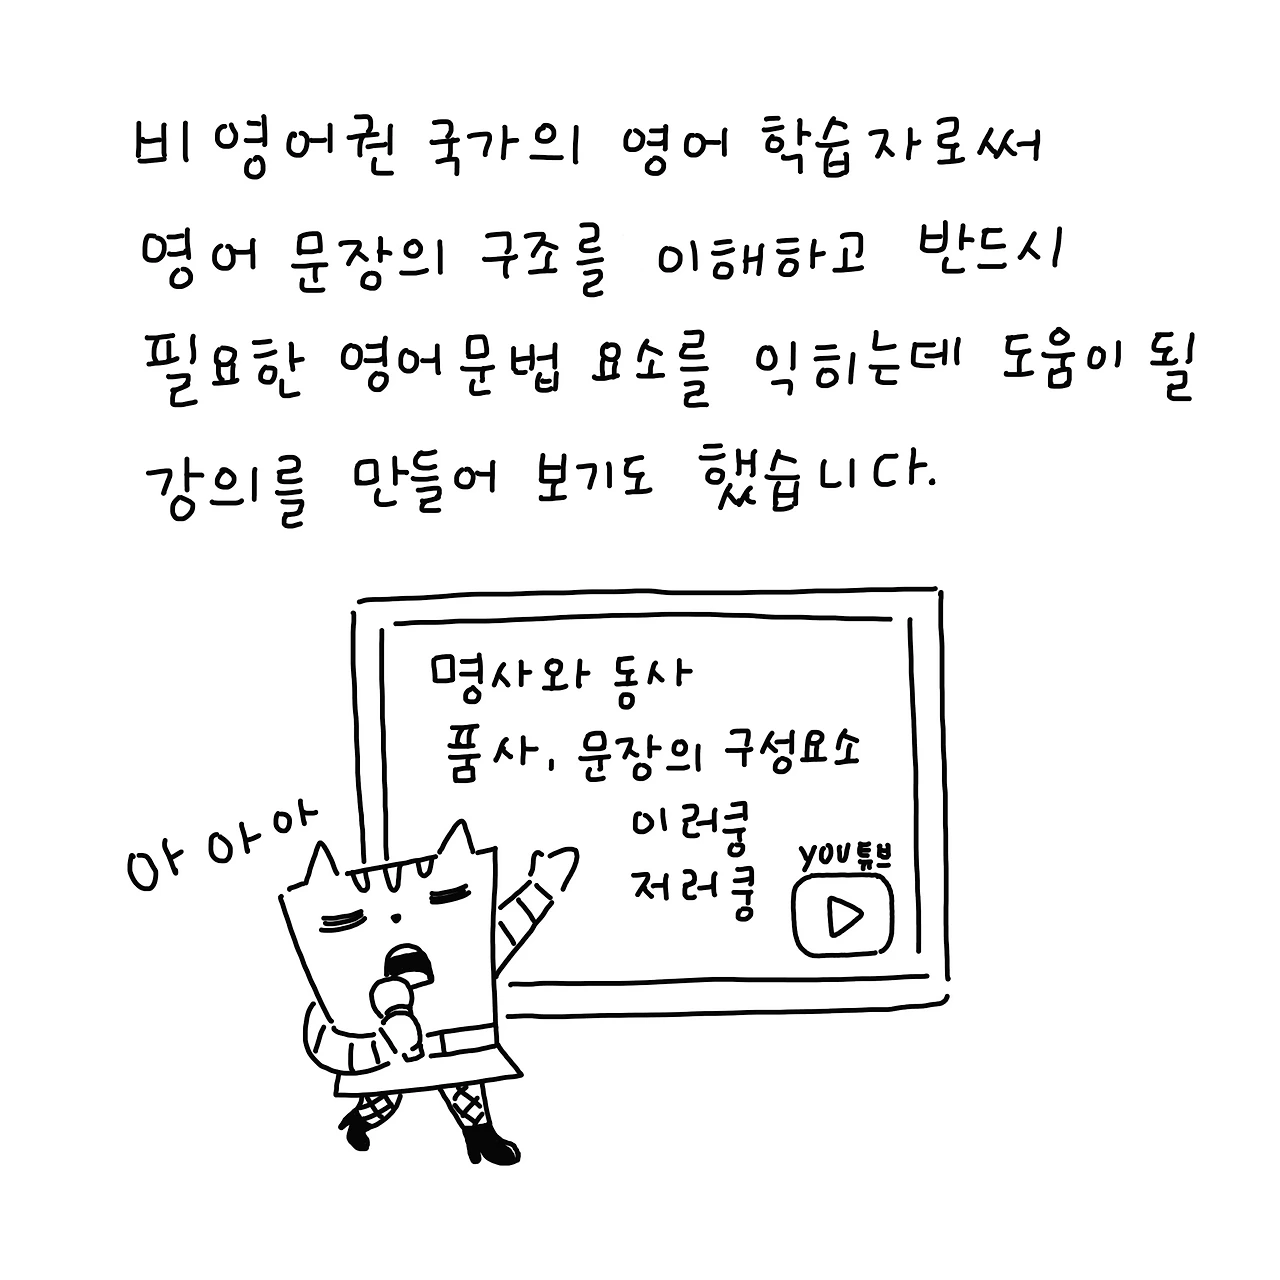 비 영어권 국가의 영어 학습자로써
영어 문장의 구조를 이해하고 반드시
필요한 영어문법 요소를 익히는데 도움이 될
강의를 만들어 보기도 했습니다.
명사와 동사
품사, 문장의 구성요소
이러쿵
저러쿵
YOU튜브
아 아 아